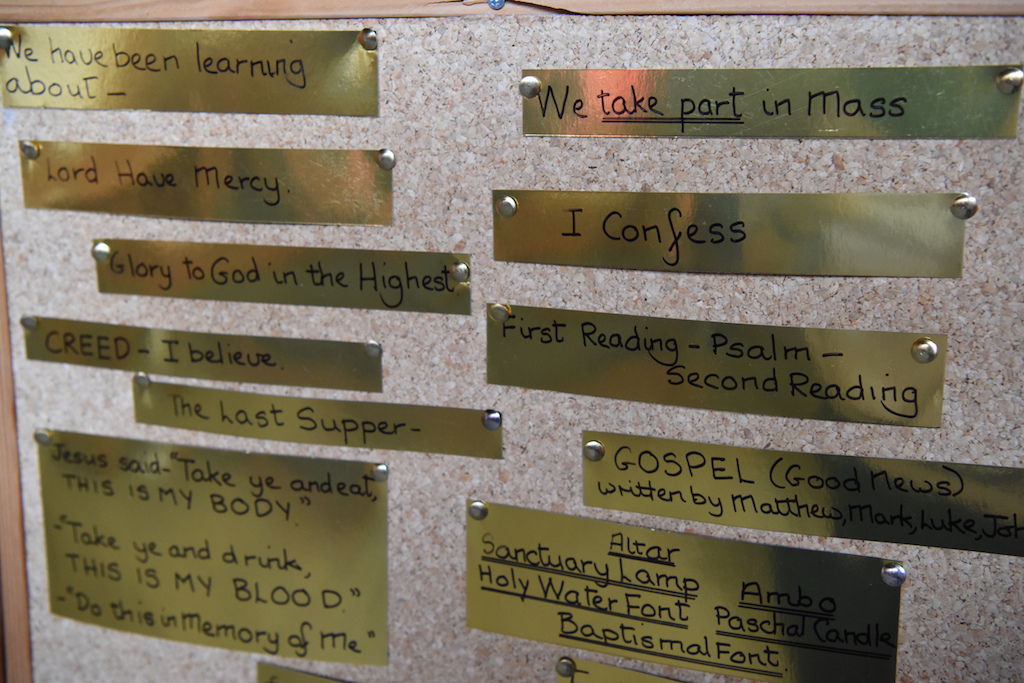 We have been learning
about -
Lord Have Mercy.
Glory to God in the Highest
CREED - I believe.
The Last Supper -
Jesus said - "Take ye and eat,
THIS IS MY BODY."
- "Take ye and drink,
THIS IS MY BLOOD."
- "Do this in Memory of Me"
We take part in Mass
I Confess
First Reading - Psalm -
Second Reading
GOSPEL (Good News)
written by Matthew, Mark, Luke, Joh
Altar
Sanctuary Lamp Ambo
Holy Water Font Paschal Candle
Baptismal Font.